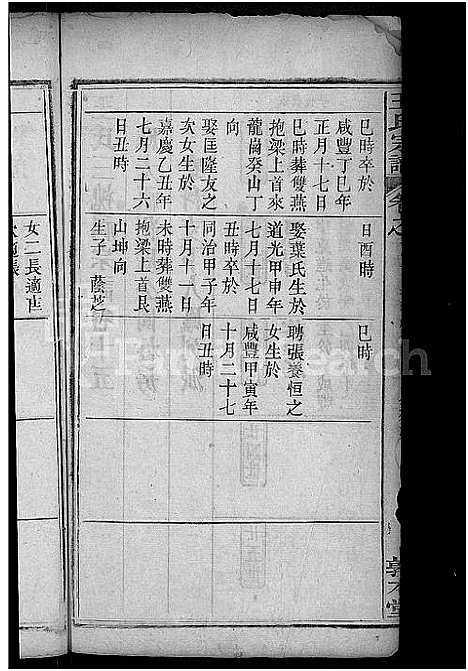 王氏宗譜
巳時卒於
咸豐丁巳年
正月十七日
巳時葬雙燕
抱梁上首來
龍崗癸山丁
向
娶匡隆友之
次女生於
嘉慶乙丑年
七月二十六
日丑時
日酉時
娶葉氏生於
道光甲申年
七月十七日
丑時卒於
同治甲子年
十月十一日
未時葬雙燕
抱梁上首艮
山坤向
生子 蔭芝
女二長適
巳時
聘張養恒之
女生於
咸豐甲寅年
十月二十七
日丑時